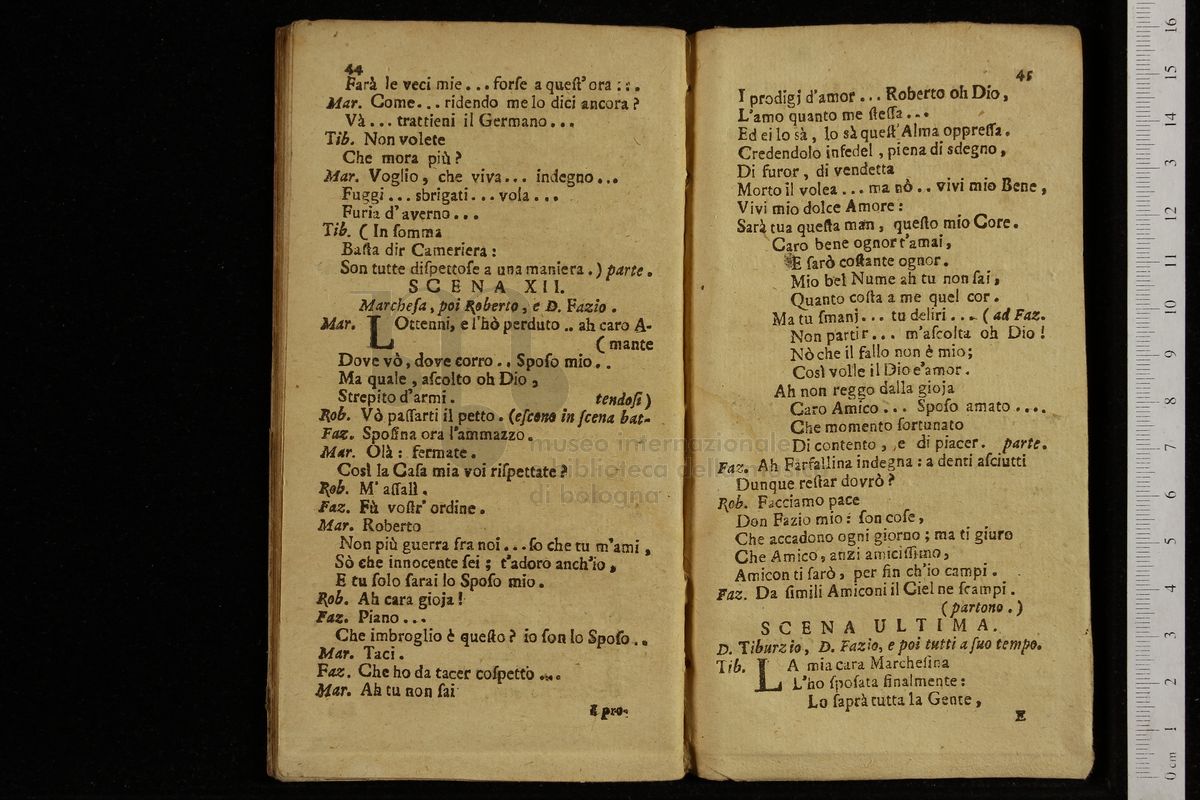 44
Farà le veci mie... forſe a queſt' ora :..
Mar. Come... ridendo me lo dici ancora?
Và... trattieni il Germano...
Tib. Non volete
Che mora più?
Mar. Voglio, che viva... indegno...
Fuggi... sbrigati... vola...
Furia d' averno...
Tib. ( In ſomma
Baſta dir Cameriera:
Son tutte diſpettoſe a una maniera.) parte.
SCENA XII.
Marcheſa, poi Roberto, e D. Fazio.
Mar. LOttenni, e l'hò perduto .. ah caro A-
( mante
Dove vò, dove corro.. Spoſo mio..
Ma quale, aſcolto oh Dio,
Strepito d'armi. tendoſi)
Rob. Vò paſſarti il petto. (eſcono in ſcena bat-
Faz. Spoſina ora l'ammazzo.
Mar. Olà: fermate.
Così la Caſa mia voi riſpettate?
Rob. M' aſſalì.
Faz. Fù voſtr' ordine.
Mar. Roberto
Non più guerra fra noi... ſo che tu m'ami,
Sò che innocente ſei; t'adoro anch'io,
E tu ſolo ſarai lo Spoſo mio.
Rob. Ah cara gioja!
Faz. Piano...
Che imbroglio è queſto? io ſon lo Spoſo..
Mar. Taci.
Faz. Che ho da tacer coſpetto ....
Mar. Ah tu non ſai
I pro-
45
I prodigj d'amor ... Roberto oh Dio,
L'amo quanto me ſteſſa...
Ed ei lo sà, lo sà queſt'Alma oppreſſa.
Credendolo infedel, piena di sdegno,
Di furor, di vendetta
Morto il volea ... ma nò .. vivi mio Bene,
Vivi mio dolce Amore:
Sarà tua queſta man, queſto mio Core.
Caro bene ognor t'amai,
E ſarò coſtante ognor.
Mio bel Nume ah tu non ſai,
Quanto coſta a me quel cor.
Ma tu ſmanj... tu deliri... ( ad Faz.
Non partir... m'aſcolta oh Dio!
Nò che il fallo non è mio;
Così volle il Dio d'amor.
Ah non reggo dalla gioja
Caro Amico... Spoſo amato ....
Che momento fortunato
Di contento, e di piacer. parte.
Faz. Ah Farfallina indegna: a denti aſciutti
Dunque reſtar dovrò?
Rob. Facciamo pace
Don Fazio mio: ſon coſe,
Che accadono ogni giorno; ma ti giuro
Che Amico, anzi amiciſſimo,
Amicon ti ſarò, per fin ch'io campi.
Faz. Da ſimili Amiconi il Ciel ne ſcampi.
(partono.)
SCENA ULTIMA.
D. Tiburzio, D. Fazio, e poi tutti a ſuo tempo.
Tib. LA mia cara Marcheſina
L'ho ſpoſata finalmente:
Lo ſaprà tutta la Gente,
E
museo internazionale
biblioteca della musica
di bologna